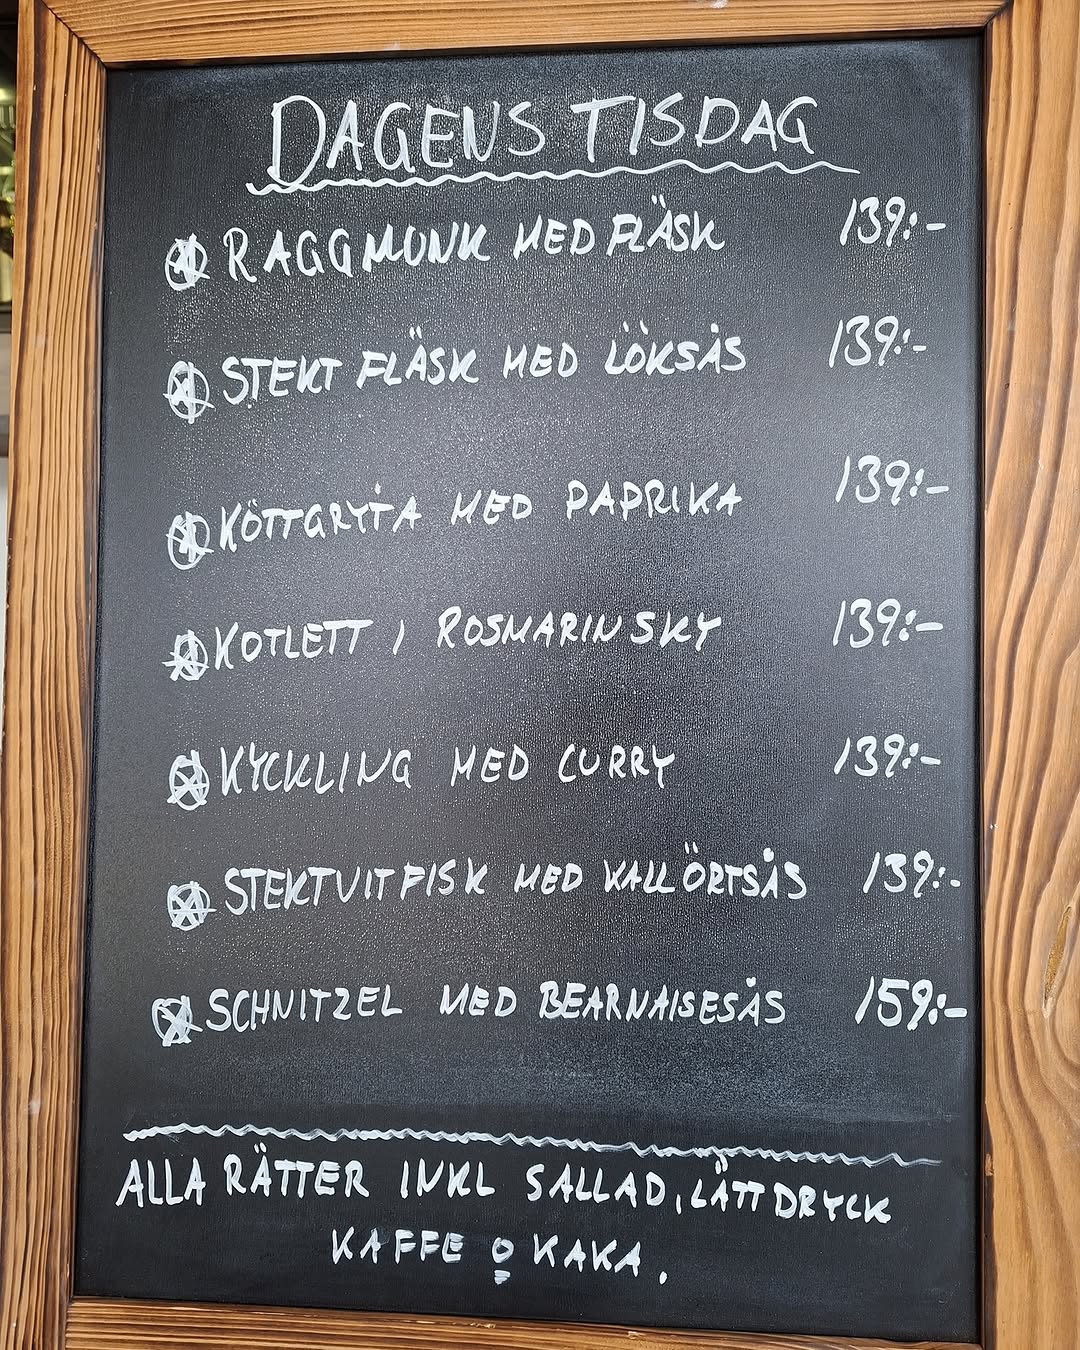 DAGENS TISDAG
RAGGMUNK MED FLÄSK 139:-
STEKT FLÄSK MED LÖKSÅS 139:-
KÖTTGRYTA MED PAPRIKA 139:-
KOTLETT I ROSMARINSKY 139:-
KYCKLING MED CURRY 139:-
STEKT VITFISK MED KALL ÖRTSÅS 139:-
SCHNITZEL MED BEARNAISESÅS 159:-
ALLA RÄTTER INKL SALLAD, LÄTTDRYCK
KAFFE o KAKA.